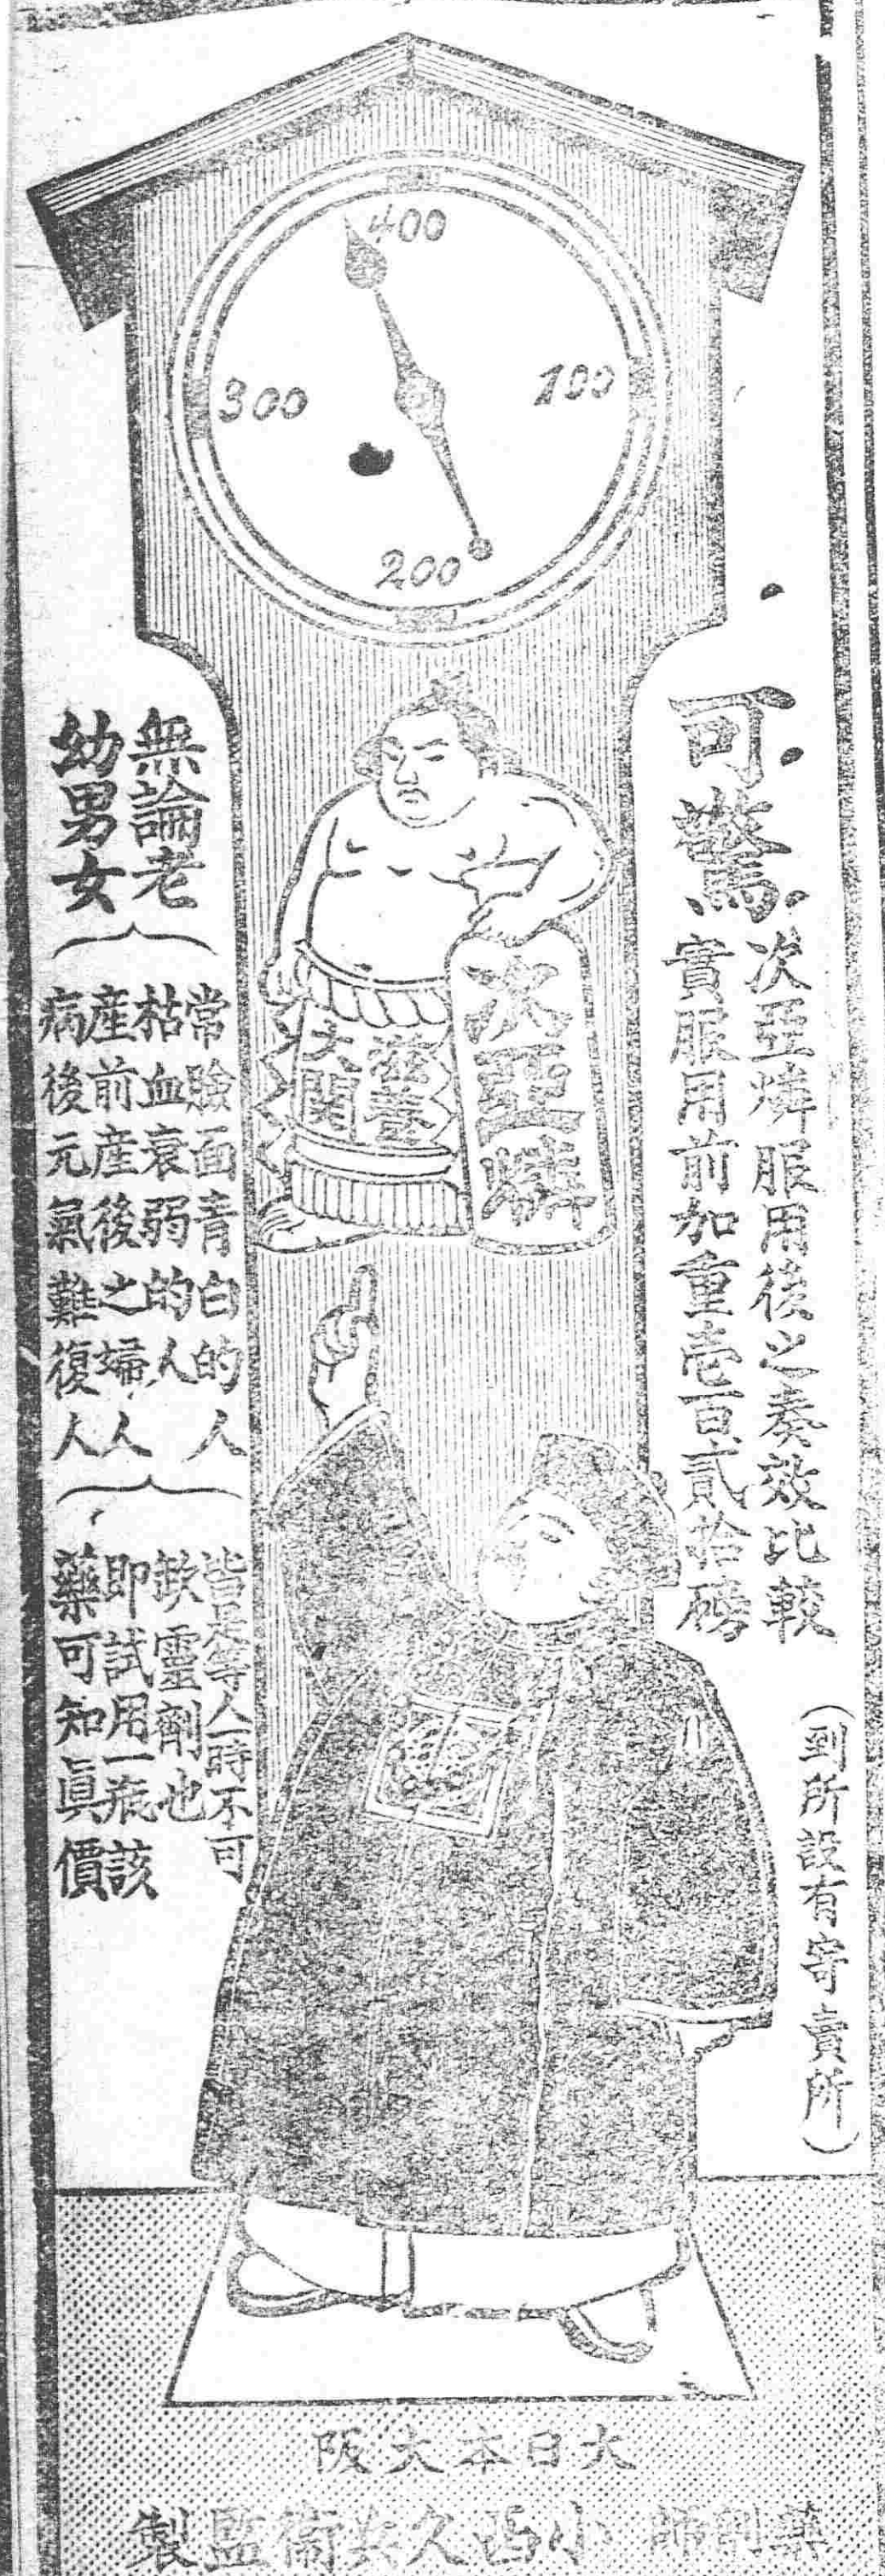 400
300
100
200
可驚
次亞燐服用後之奏效比較
實服用前加重壱百貳拾磅
(到所設有寄賣所)
次亞燐
滋養
大関
無論老
幼男女
常臉面青白的人
枯血衰弱的人
産前産後之婦人
病後元氣難復人
皆是等人一時不可
欵靈劑也
即試用一瓶該
藥可知眞價
大日本大阪
藥劑師 小西久兵衞監製